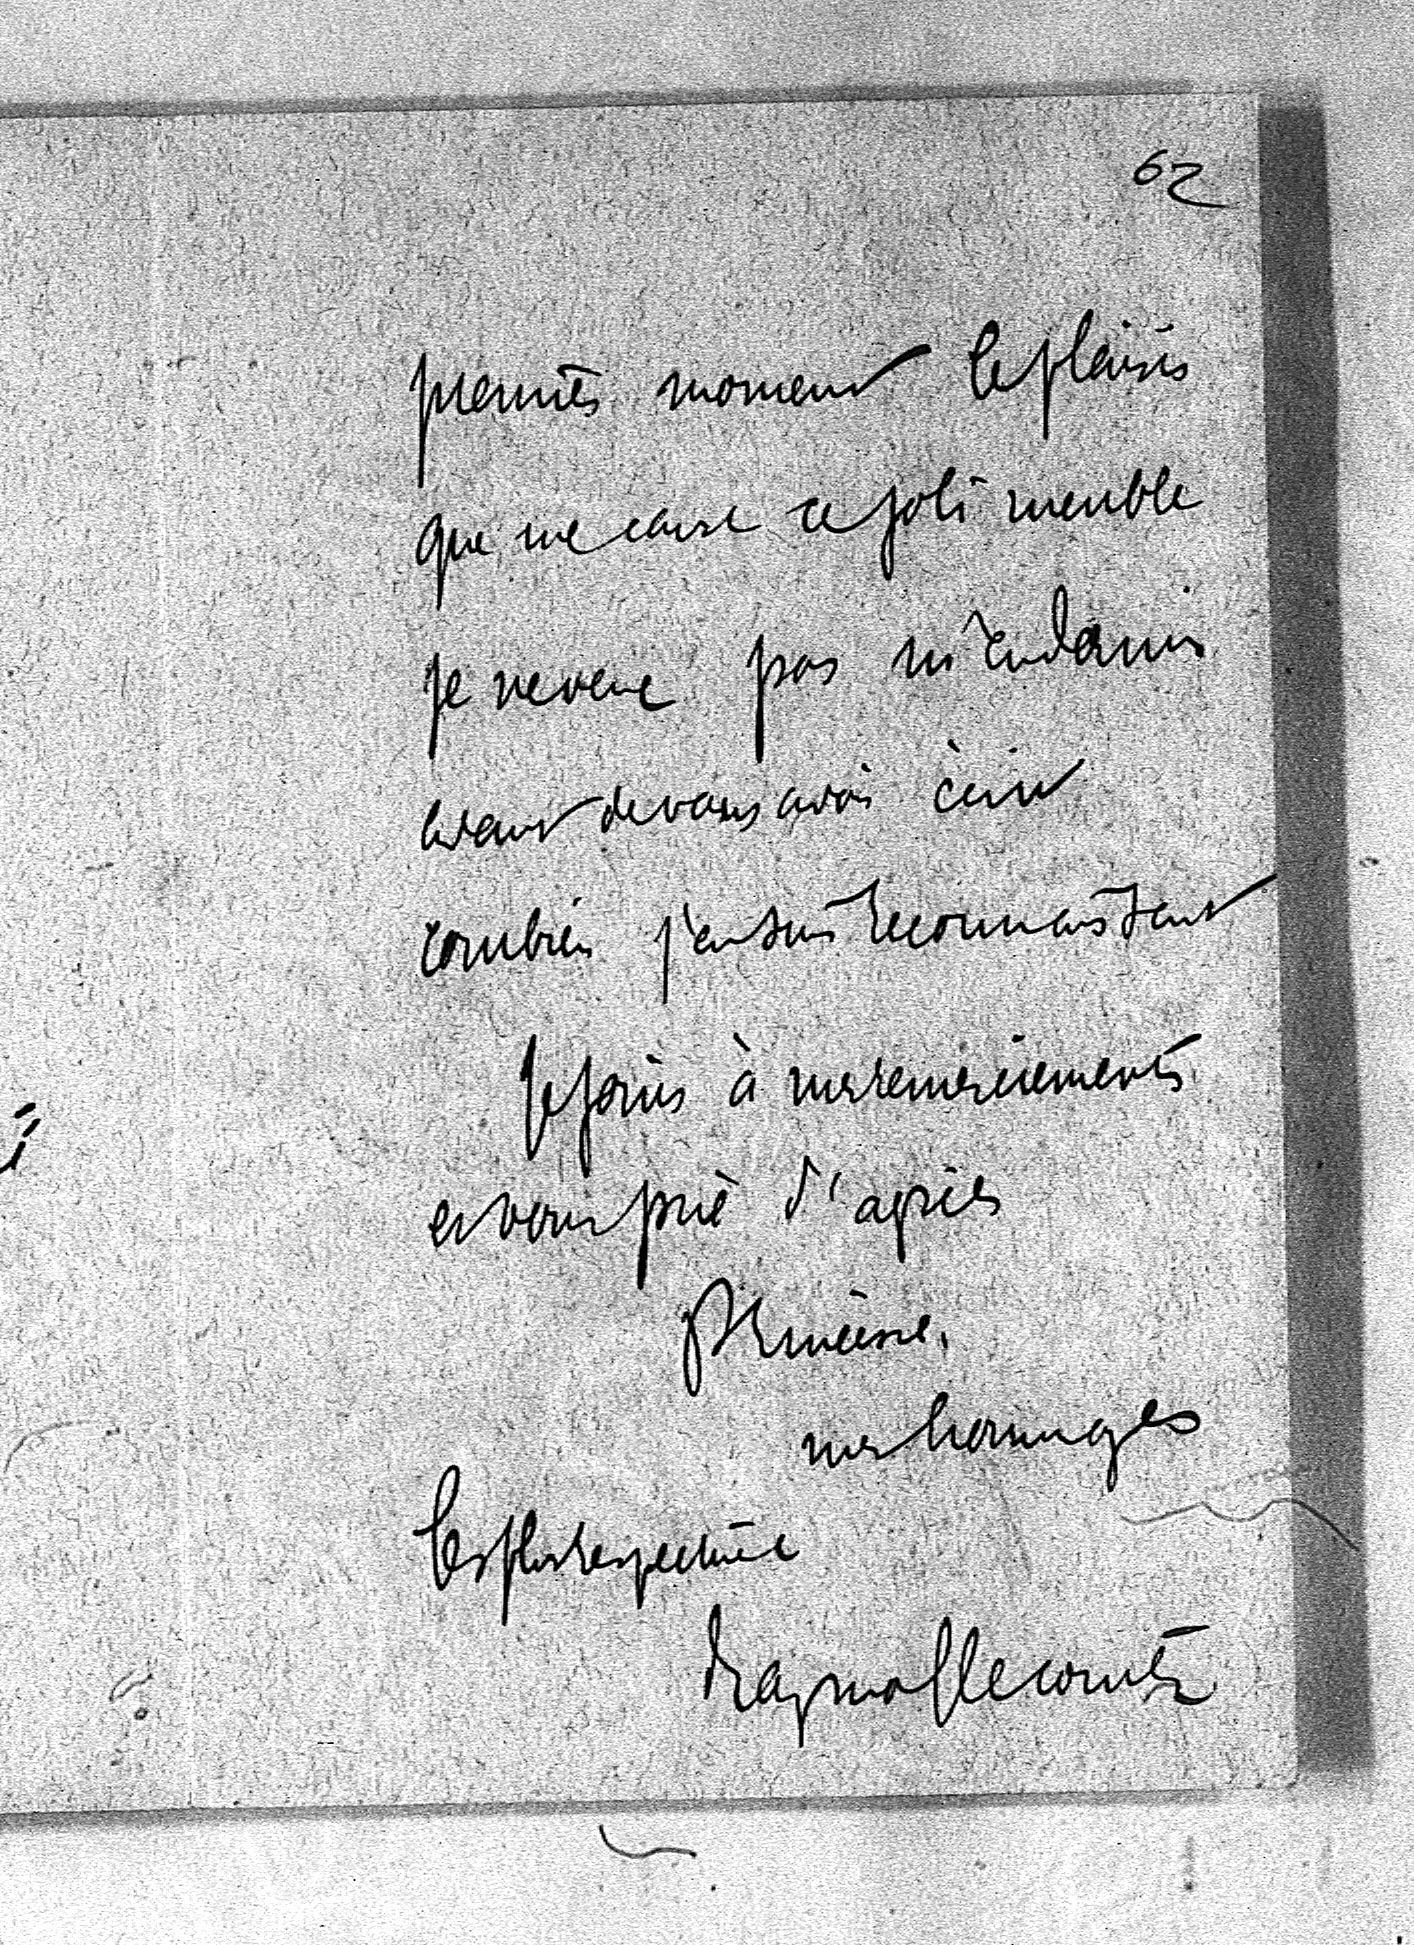 62
premier moment le plaisir
que me cause ce joli meuble
je ne veux pas m'endormir
avant de vous avoir écrit
combien j'en suis reconnaissant
Je joins à mes remerciements
et vous prie d'agréer
Princesse,
mes hommages
les plus respectueux